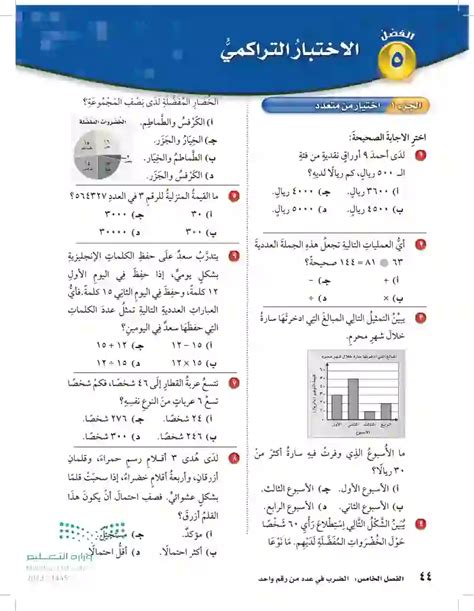 الفصل
٥
الاختبار التراكمي
الجزء ١ اختيار من متعدد
اختر الإجابة الصحيحة:
١ لدى أحمد ٩ أوراق نقدية من فئة
الـ ٥٠٠ ريال، كم ريالًا لديه؟
أ) ٣٦٠٠ ريال. ج) ٤٠٠٠ ريال.
ب) ٤٥٠٠ ريال. د) ٥٠٠٠ ريال.
٢ أيُّ العمليات التالية تجعل هذه الجملة العددية
٦٣ ● ٨١ = ١٤٤ صحيحة؟
أ) + ج) −
ب) × د) ÷
٣ يبيّن التمثيل التالي المبالغ التي ادخرتها سارة
خلال شهر محرم.
المبالغ التي ادخرتها سارة خلال شهر محرم
الأول الثاني الثالث الرابع
ما الأسبوع الذي وفرت فيه سارة مبلغ
٣٠ ريالًا؟
أ) الأسبوع الأول. ج) الأسبوع الثالث.
ب) الأسبوع الثاني. د) الأسبوع الرابع.
٤ يُبيّن الشكل التالي استطلاع رأي ٦٠ شخصًا
حول الخضروات المفضلة لديهم. ما نوعا
الخضار المفضلة لدى نصف المجموعة؟
أ) الكرفس والطماطم.
ج) الخيار والجزر.
ب) الطماطم والخيار.
د) الكرفس والجزر.
الخضروات المفضلة
٥ ما القيمة المنزلية للرقم ٣ في العدد ٥٦٤٣٢٧؟
أ) ٣٠ ج) ٣٠٠٠
ب) ٣٠٠ د) ٣٠٠٠٠
٦ يتدرب سعد على حفظ الكلمات الإنجليزية
بشكل يومي، إذا حفظ في اليوم الأول
١٢ كلمة، وحفظ في اليوم الثاني ١٥ كلمة. فأيُّ
العبارات العددية التالية تمثل عدد الكلمات
التي حفظها سعد في اليومين؟
أ) ١٥ − ١٢ ج) ١٢ + ١٥
ب) ١٢ × ١٥ د) ١٥ ÷ ١٢
٧ تتسع عربة القطار إلى ٤٦ شخصًا، فكم شخصًا
تسع ٦ عربات من النوع نفسه؟
أ) ٢٤ شخصًا. ج) ٢٧٦ شخصًا.
ب) ٢٤٦ شخصًا. د) ٣٠٠ شخص.
٨ لدى هدى ٣ أقلام رسم حمراء، وقلمان
أزرقان، وأربعة أقلام خضراء، إذا سحبت قلمًا
بشكل عشوائي. فصف احتمال أن يكون هذا
القلم أزرق؟
أ) أكيد. ج) مستحيل.
ب) أكثر احتمالًا. د) أقل احتمالًا.
وزارة التعليم
٤٤ الفصل الخامس: الضرب في عدد من رقم واحد